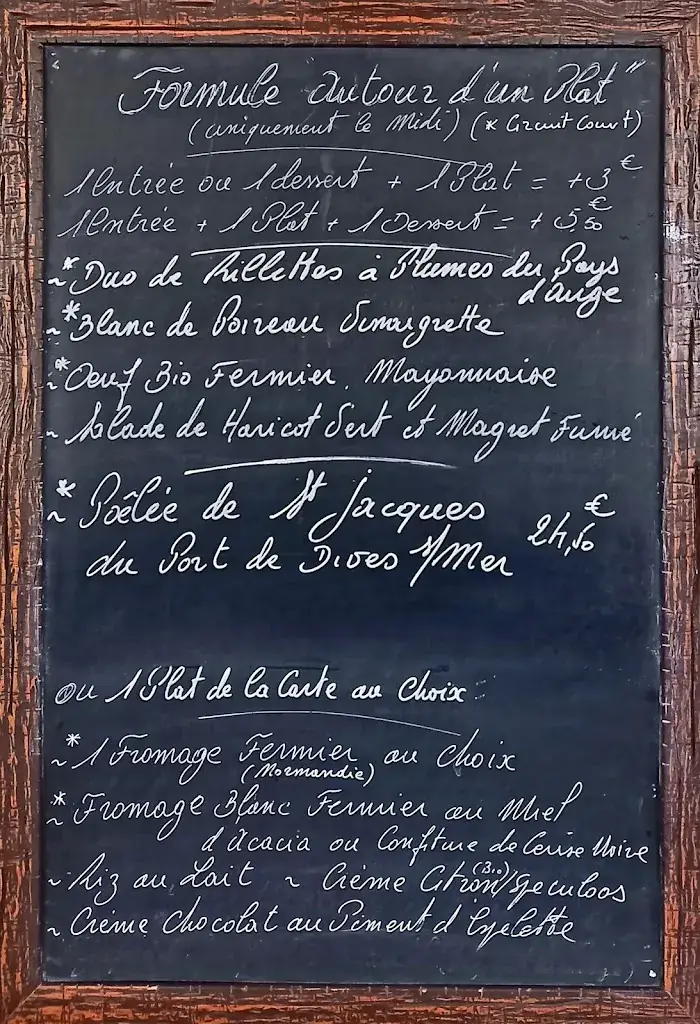 Formule "Autour d'un Plat"
(uniquement le Midi) (* Circuit Court)
1 Entrée ou 1 dessert + 1 Plat = +3€
1 Entrée + 1 Plat + 1 Dessert = + 5,50€
~ * Duo de Rillettes à Plumes du Pays
d'Auge
~ * Blanc de Poireau Vinaigrette
~ * Oeuf Bio Fermier, Mayonnaise
~ Salade de Haricot Vert et Magret Fumé
~ * Poêlée de St Jacques
du Port de Dives s/Mer 24,50€
Ou 1 Plat de la Carte au Choix
~ * 1 Fromage Fermier au choix
(Normandie)
~ * Fromage Blanc Fermier au Miel
d'Acacia ou Confiture de Cerise Noire
~ Riz au Lait ~ Crème Citron (Bio)/Speculoos
~ Crème Chocolat au Piment d'Espelette